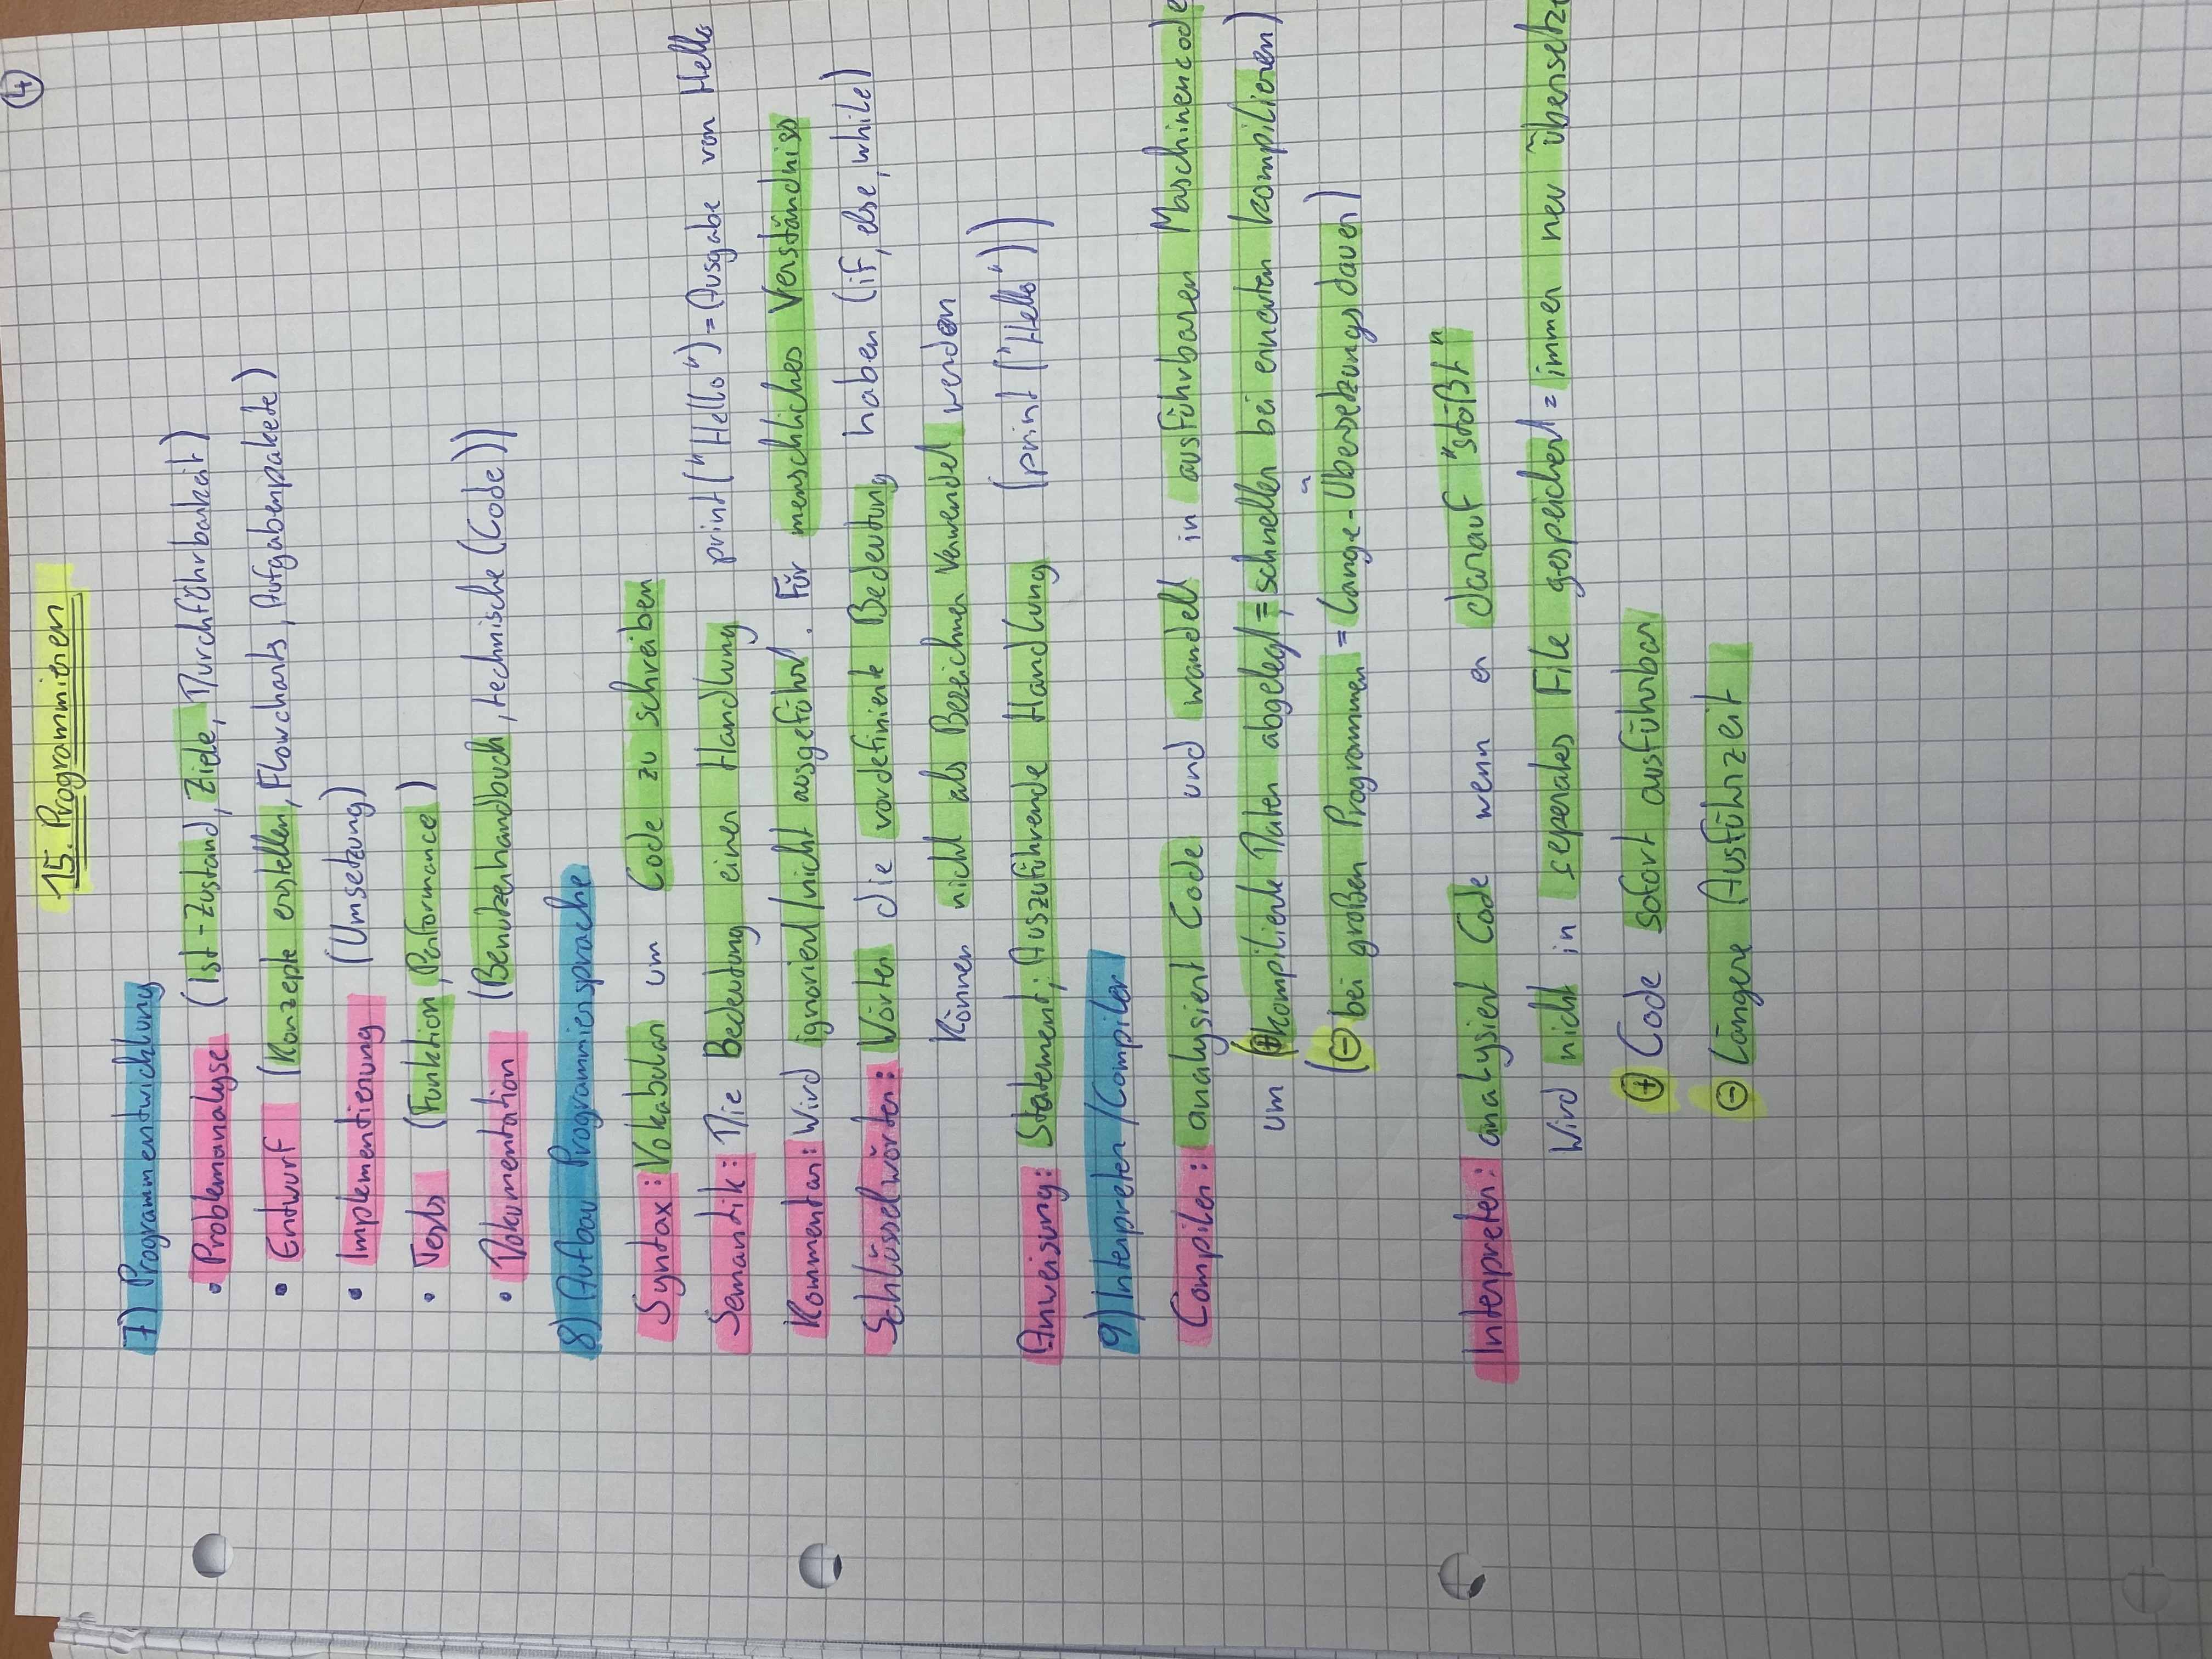 4
15. Programmieren
7) Programmentwicklung
• Problemanalyse (Ist-Zustand, Ziele, Durchführbarkeit)
• Entwurf (Konzepte erstellen, Flowcharts, Aufgabenpakete)
• Implementierung (Umsetzung)
• Tests (Funktion, Performance)
• Dokumentation (Benutzerhandbuch, technische (Code))
8) Aufbau Programmiersprache
Syntax: Vokabular um Code zu schreiben
Semantik: Die Bedeutung einer Handlung print("Hello") = Ausgabe von Hello
Kommentar: Wird ignoriert/nicht ausgeführt. Für menschliches Verständniss
Schlüsselwörter: Wörter die vordefinierte Bedeutung haben (if, else, while)
Können nicht als Bezeichner verwendet werden
Anweisung: Statement; Auszuführende Handlung (print ("Hello"))
9) Interpreter/Compiler
Compiler: analysiert Code und wandelt in ausführbaren Maschinencode
um (⊕ kompilierte Daten abgelegt = schneller bei erneuten kompilieren)
(⊖ bei großen Programmen = Lange-Übersetzungsdauer)
Interpreter: analysiert Code wenn er darauf "stößt"
Wird nicht in seperates File gespeichert = immer neu übersetzt
⊕ Code sofort ausführbar
⊖ Längere Ausführzeit